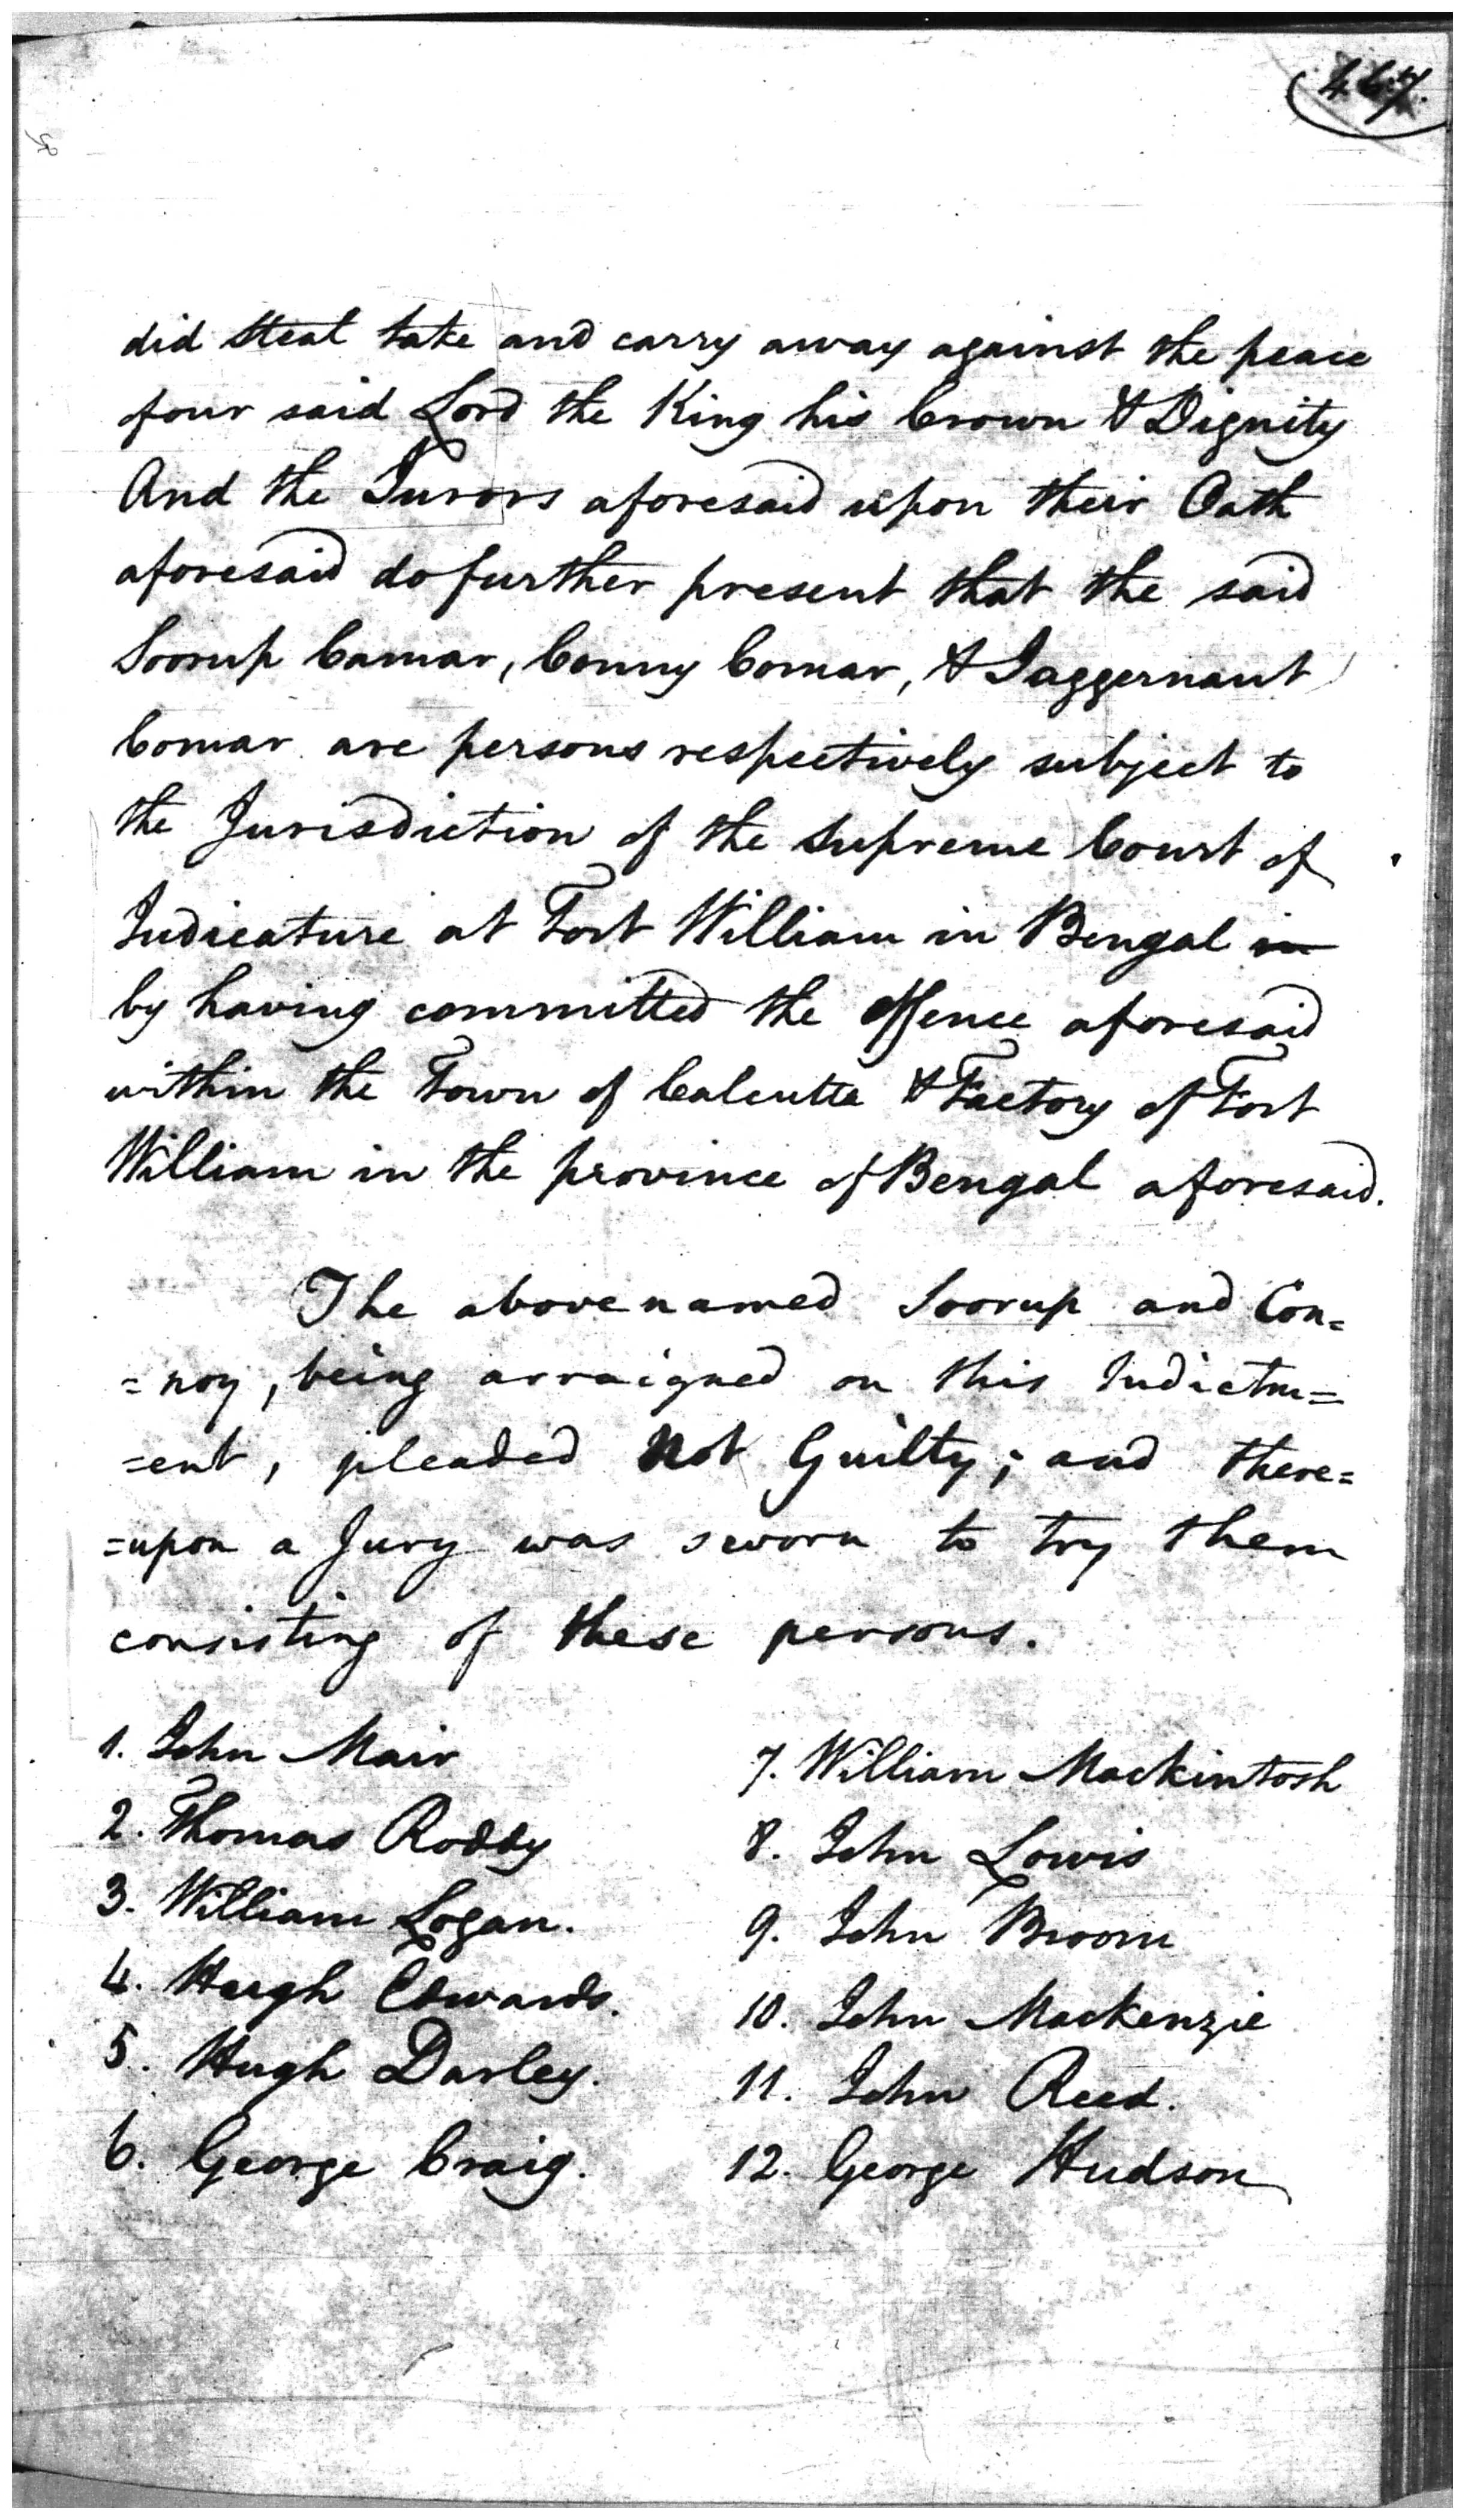 467.
did steal take and carry away against the peace
of our said Lord the King his Crown & Dignity
And the Jurors aforesaid upon their Oath
aforesaid do further present that the said
Soorup Camar, Conny Comar, & Jaggernaut
Comar are persons respectively subject to
the Jurisdiction of the Supreme Court of
Judicature at Fort William in Bengal in
by having committed the offence aforesaid
within the Town of Calcutta & Factory of Fort
William in the province of Bengal aforesaid.
The above named Soorup and Con=
=noy, being arraigned on this Indictm=
=ent, pleaded Not Guilty; and there=
=upon a Jury was sworn to try them
consisting of these persons.
1. John Mair
2. Thomas Roddy
3. William Logan.
4. Hugh Edwards.
5. Hugh Darley.
6. George Craig.
7. William Mackintosh
8. John Lowis
9. John Broom
10. John Mackenzie
11. John Reed.
12. George Hudson